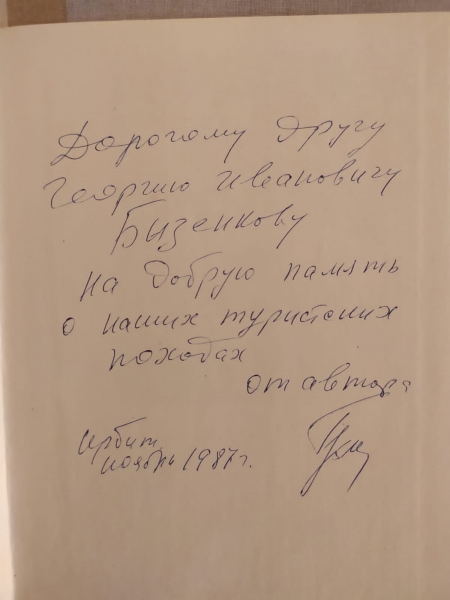 Дорогому другу
Георгию Ивановичу
Бызенкову
на добрую память
о наших туристских
походах
от автора
Ирбит
ноябрь 1987г.